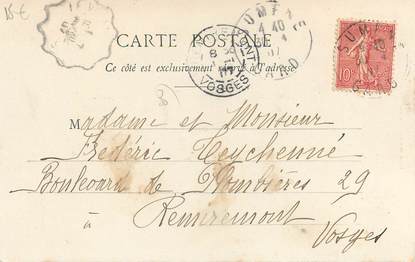 15€
CARTE POSTALE
Ce côté est exclusivement réservé à l'adresse
VOSGES
SUM
GARD
10
Madame et Monsieur
Frédéric Teychenné
Boulevard de Plombières 29
à Remiremont
Vosges